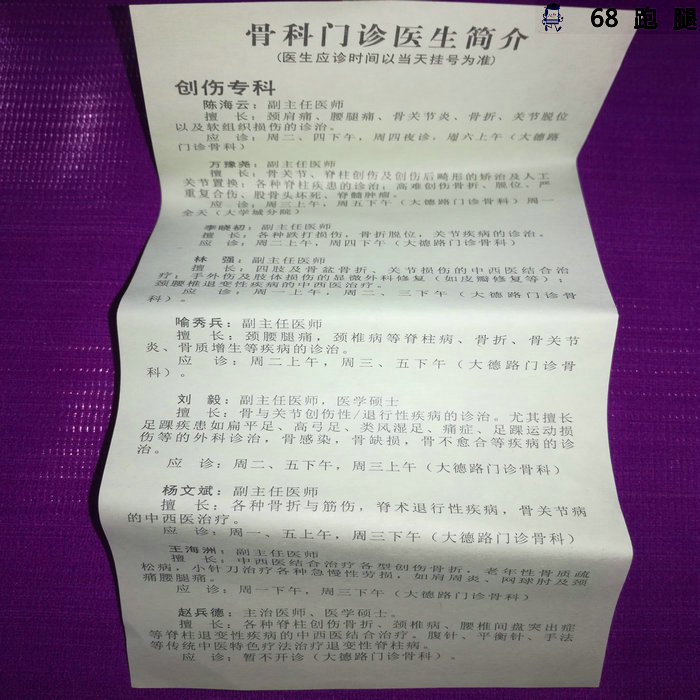 68 跑 腿
骨科门诊医生简介
(医生应诊时间以当天挂号为准)
创伤专科
陈海云：副主任医师
擅 长：颈肩痛、腰腿痛、骨关节炎、骨折、关节脱位
以及软组织损伤的诊治。
应 诊：周二、四下午，周四夜诊，周六上午（大德路
门诊骨科）
万豫尧：副主任医师
擅 长：骨关节、脊柱创伤及创伤后畸形的矫治及人工
关节置换；各种脊柱疾患的诊治；高难创伤骨折、脱位、严
重复合伤、股骨头坏死、脊髓肿瘤。
应 诊：周三上午，周五下午（大德路门诊骨科）周一
全天（大学城分院）
李晓初：副主任医师
擅 长：各种跌打损伤，骨折脱位，关节疾病的诊治。
应 诊：周二上午，周四下午（大德路门诊骨科）
林 强：副主任医师
擅 长：四肢及骨盆骨折、关节损伤的中西医结合治
疗；手外伤及肢体损伤的显微外科修复（如皮瓣修复等）；
颈腰椎退变性疾病的中西医治疗。
应 诊：周一上午，周二、三下午（大德路门诊骨
科）。
喻秀兵：副主任医师
擅 长：颈腰腿痛，颈椎病等脊柱病、骨折、骨关节
炎、骨质增生等疾病的诊治。
应 诊：周二上午，周三、五下午（大德路门诊骨
科）。
刘 毅：副主任医师，医学硕士
擅 长：骨与关节创伤性/退行性疾病的诊治。尤其擅长
足踝疾患如扁平足、高弓足、类风湿足、痛症、足踝运动损
伤等的外科诊治，骨感染，骨缺损，骨不愈合等疾病的诊
治。
应 诊：周二、五下午，周三上午（大德路门诊骨科）
杨文斌：副主任医师
擅 长：各种骨折与筋伤，脊术退行性疾病，骨关节病
的中西医治疗。
应 诊：周一、五上午，周三下午（大德路门诊骨科）
王海洲：副主任医师
擅 长：中西医结合治疗各型创伤骨折，老年性骨质疏
松病，小针刀治疗各种急慢性劳损，如肩周炎、网球肘及颈
痛腰腿痛。
应 诊：周一下午，周三下午（大德路门诊骨科）
赵兵德：主治医师、医学硕士。
擅 长：各种脊柱创伤骨折、颈椎病、腰椎间盘突出症
等脊柱退变性疾病的中西医结合治疗。腹针、平衡针、手法
等传统中医特色疗法治疗退变性脊柱病。
应 诊：暂不开诊（大德路门诊骨科）。